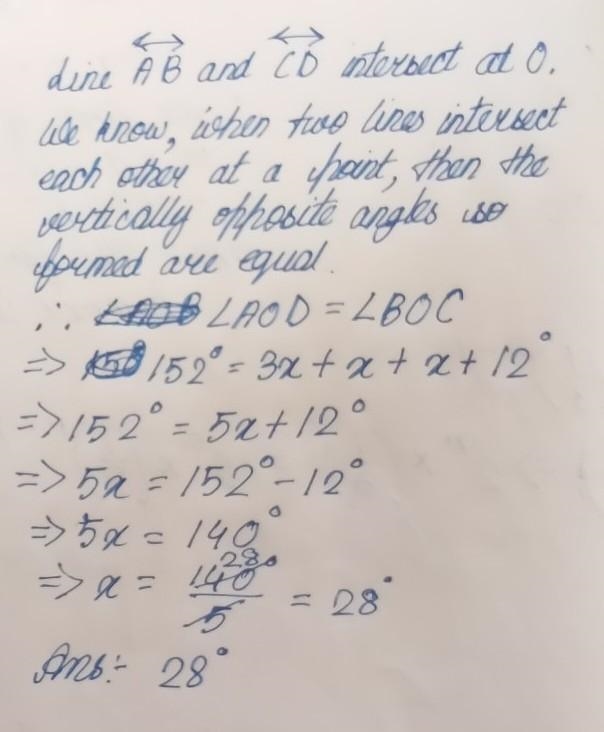 Line AB and CD intersect at O.
We know, when two lines intersect
each other at a point, then the
vertically opposite angles so
formed are equal.
∴ ∠AOD = ∠BOC
=> 152° = 3x + x + x + 12°
=> 152° = 5x + 12°
=> 5x = 152° - 12°
=> 5x = 140°
=> x = 140°/5 28 = 28°
Ans:- 28°